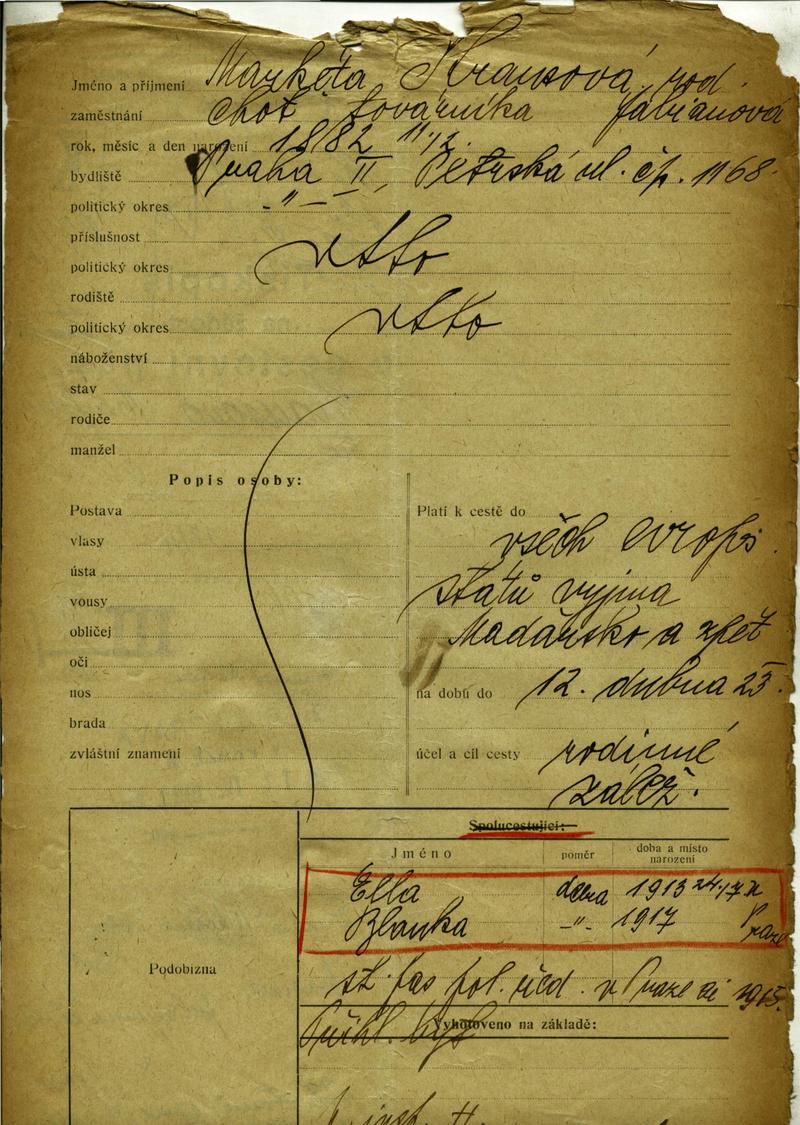 Jméno a příjmení Markéta Krausová, rod.
zaměstnání choť továrníka Fabianová
rok, měsíc a den narození 1882 11/12.
bydliště Praha II, Petrská ul. čp. 1168.
politický okres -"-
příslušnost
politický okres dtto
rodiště
politický okres dtto
náboženství
stav
rodiče
manžel
Popis osoby:
Postava
vlasy
ústa
vousy
obličej
oči
nos
brada
zvláštní znamení
Platí k cestě do
všech evrops.
států vyjma
Madarsko a zpět
na dobu do 12. dubna 25.
účel a cíl cesty rodinné
zálež.
Spolucestující:
Jméno poměr doba a místo narození
Ella dcera 1913 24/7 v
Blanka -"- 1917 Praze
Podobizna
st. pas pol. řed. v Praze 1915.
Vyhotoveno na základě:
Přihl. byt